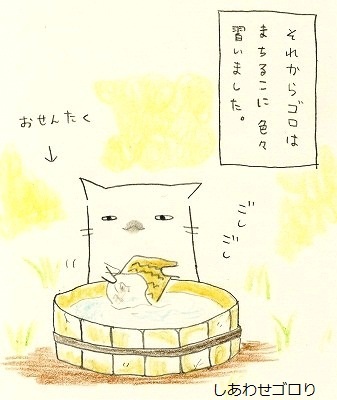 それからゴロは
まちるこに色々
習いました。
おせんたく
ごし
ごし
しあわせゴロり